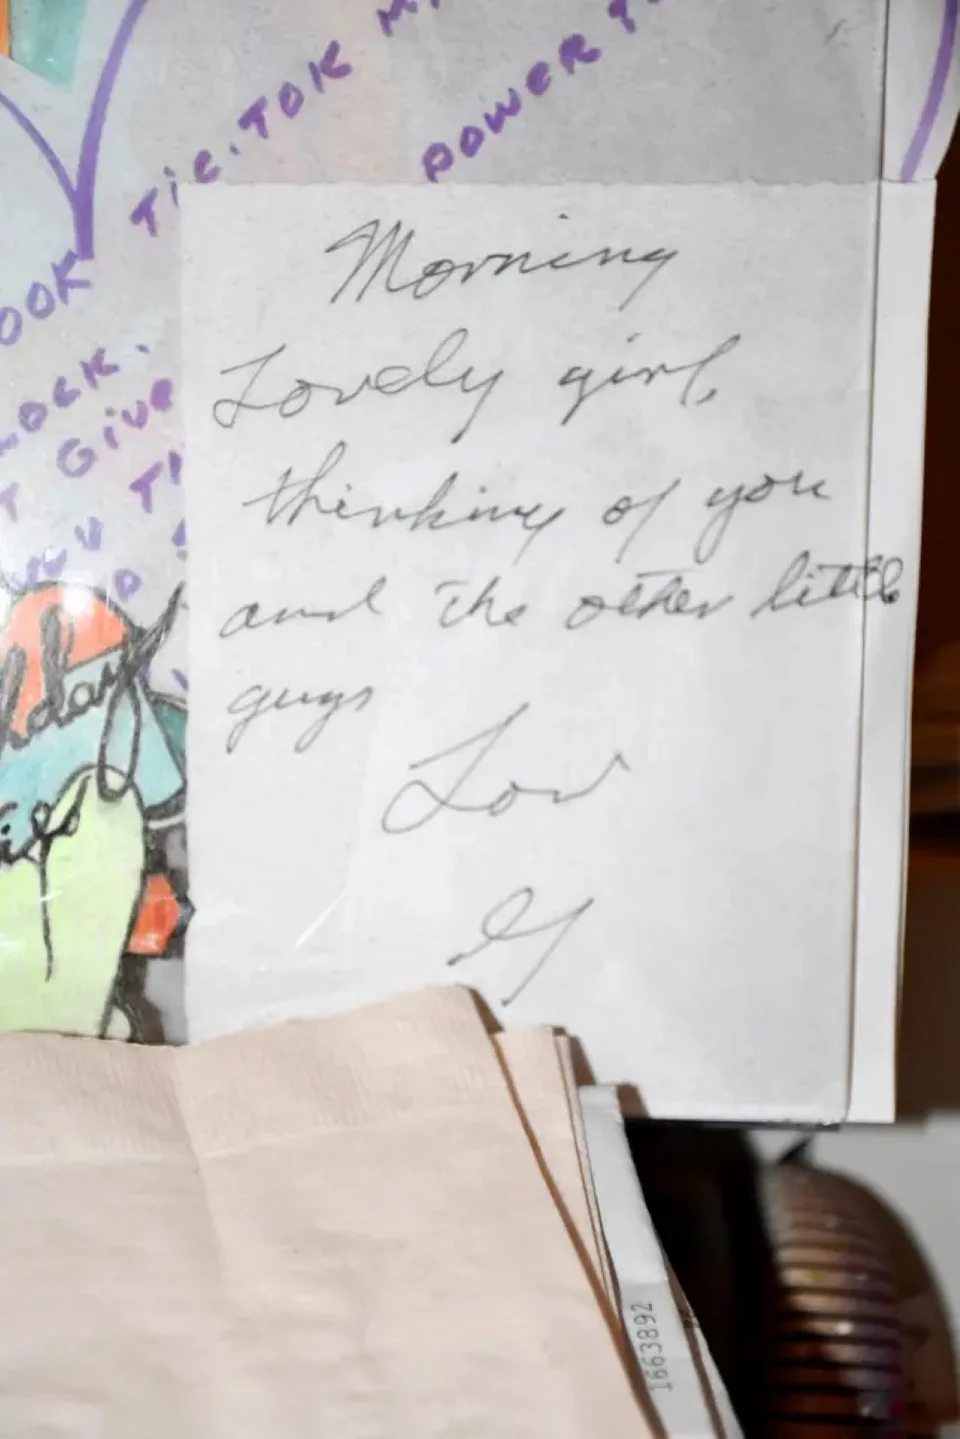 TIC.TOK
POWER
OOK
OCK.
GIVE
Morning
Lovely girl,
thinking of you
and the other little
guys
Lov
G
1663892